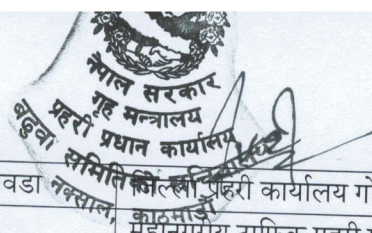 नेपाल सरकार
गृह मन्त्रालय
प्रहरी प्रधान कार्यालय
बढुवा समितिको सचिवालय
नक्साल, काठमाडौं
वडा जिल्ला प्रहरी कार्यालय
महानगरीय ट्राफिक प्रहरी